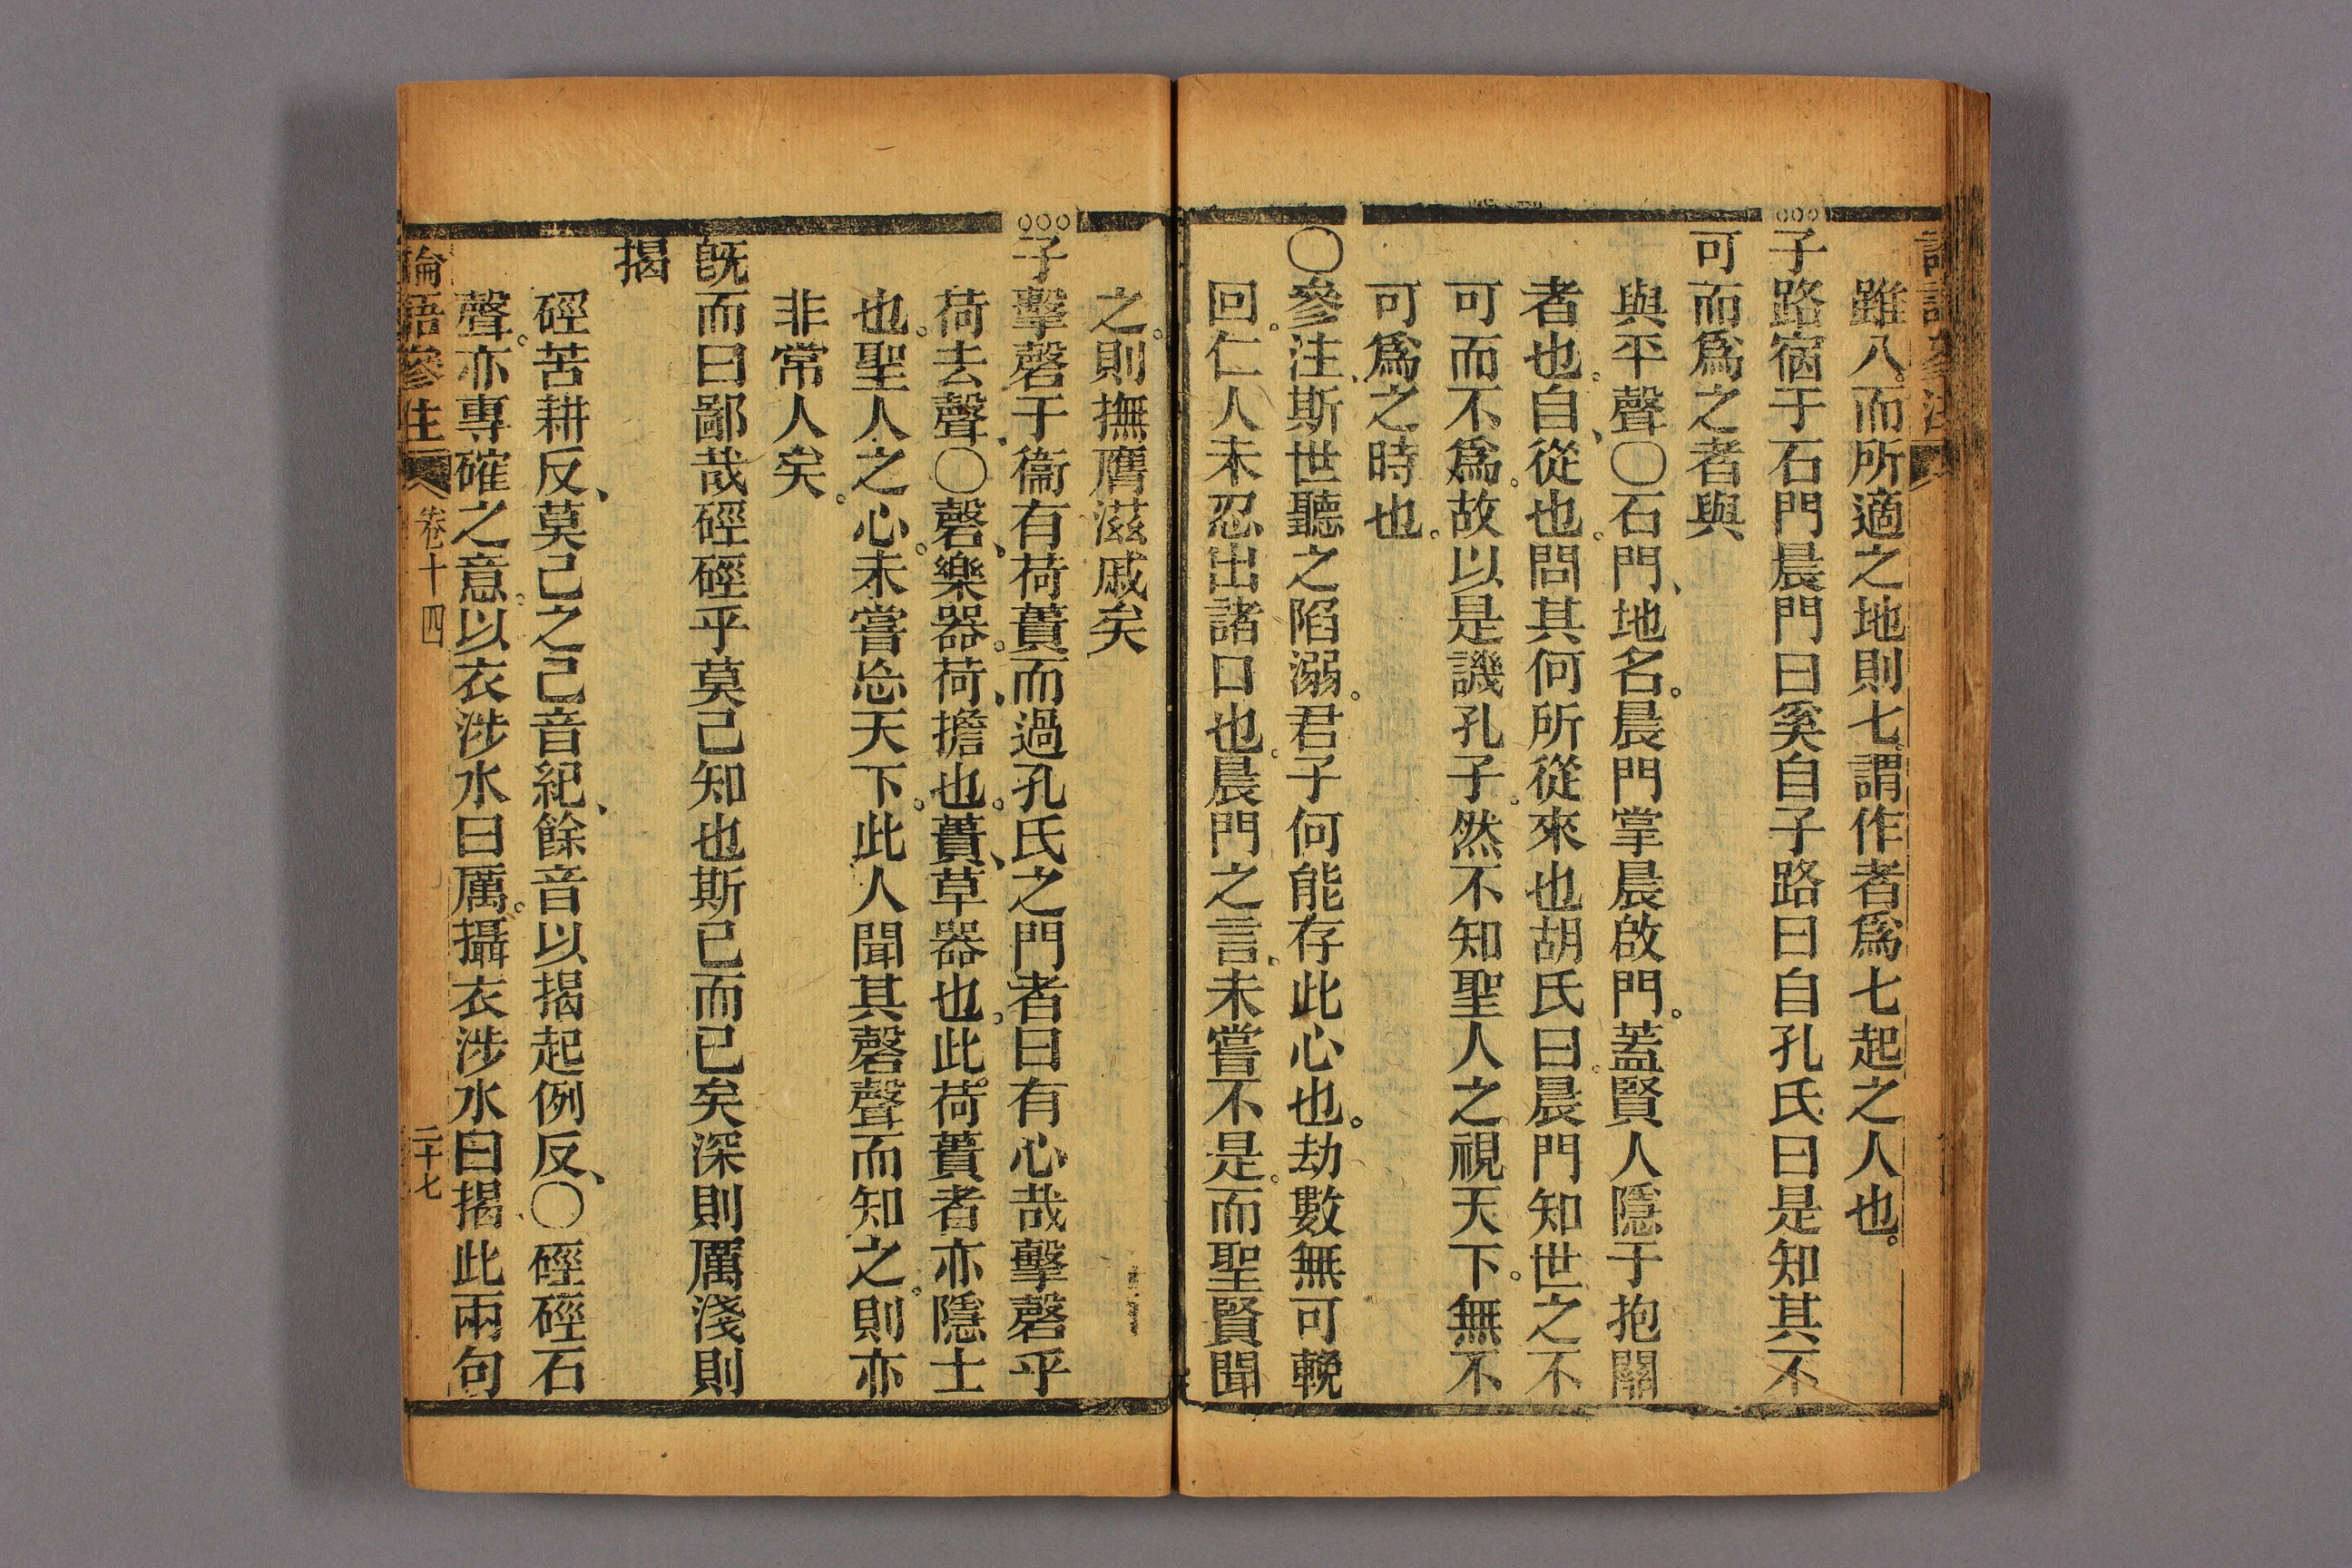 雖八而所適之地則七謂作者爲七起之人也。
子路宿于石門晨門曰奚自子路曰自孔氏曰是知其不
可而爲之者與
與平聲〇石門、地名。晨門掌晨啟門。蓋賢人隱于抱關
者也。自、從也。問其何所從來也胡氏曰。晨門知世之不
可而不爲。故以是譏孔子。然不知聖人之視天下。無不
可爲之時也。
〇參注、斯世聽之陷溺。君子何能存此心也。劫數無可輓
回。仁人未忍出諸口也。晨門之言、未嘗不是。而聖賢聞
之。則撫膺滋戚矣
子擊磬于衞有荷蕢而過孔氏之門者曰有心哉擊磬乎
荷去聲、〇磬、樂器。荷、擔也。蕢、草器也。此荷蕢者亦隱士
也。聖人之心。未嘗忘天下。此人聞其磬聲而知之。則亦
非常人矣。
旣而曰鄙哉硜硜乎莫己知也斯已而已矣深則厲淺則
揭
硜苦耕反、莫己之己音紀、餘音以揭起例反、〇硜硜石
聲。亦專確之意。以衣涉水曰厲。攝衣涉水曰揭、此兩句
論語參注 卷十四 二十七